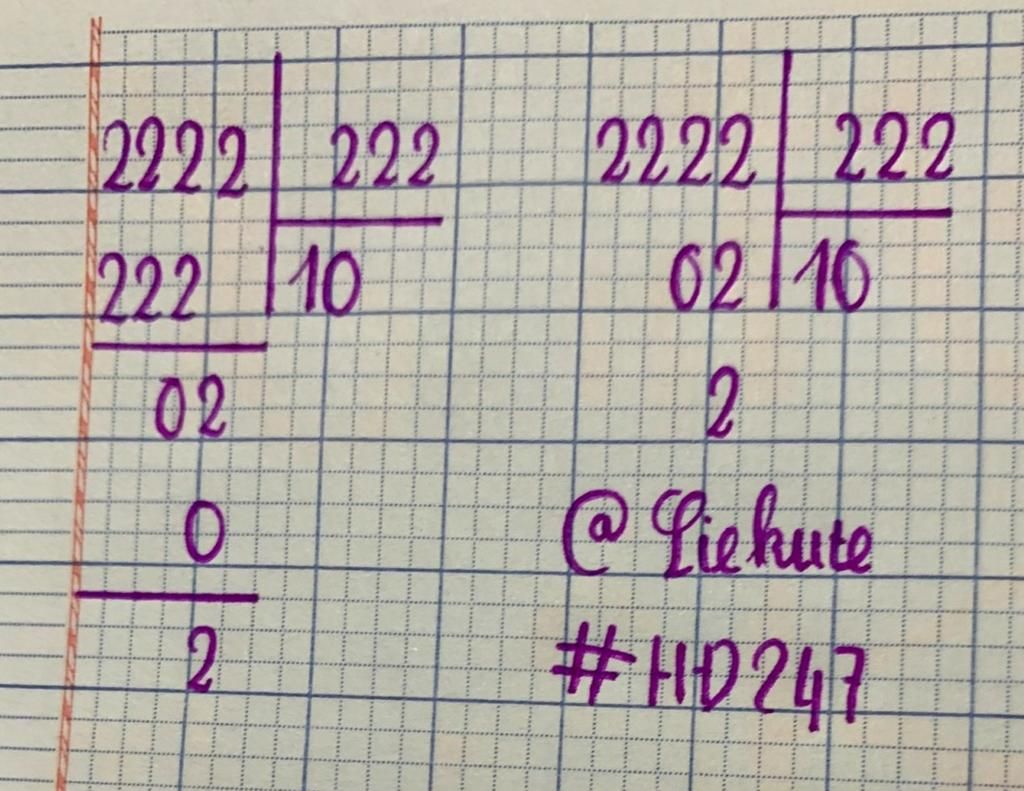 2222 222
222 10
02
0
2
2222 222
02 10
2
@ Liekute
#HD247